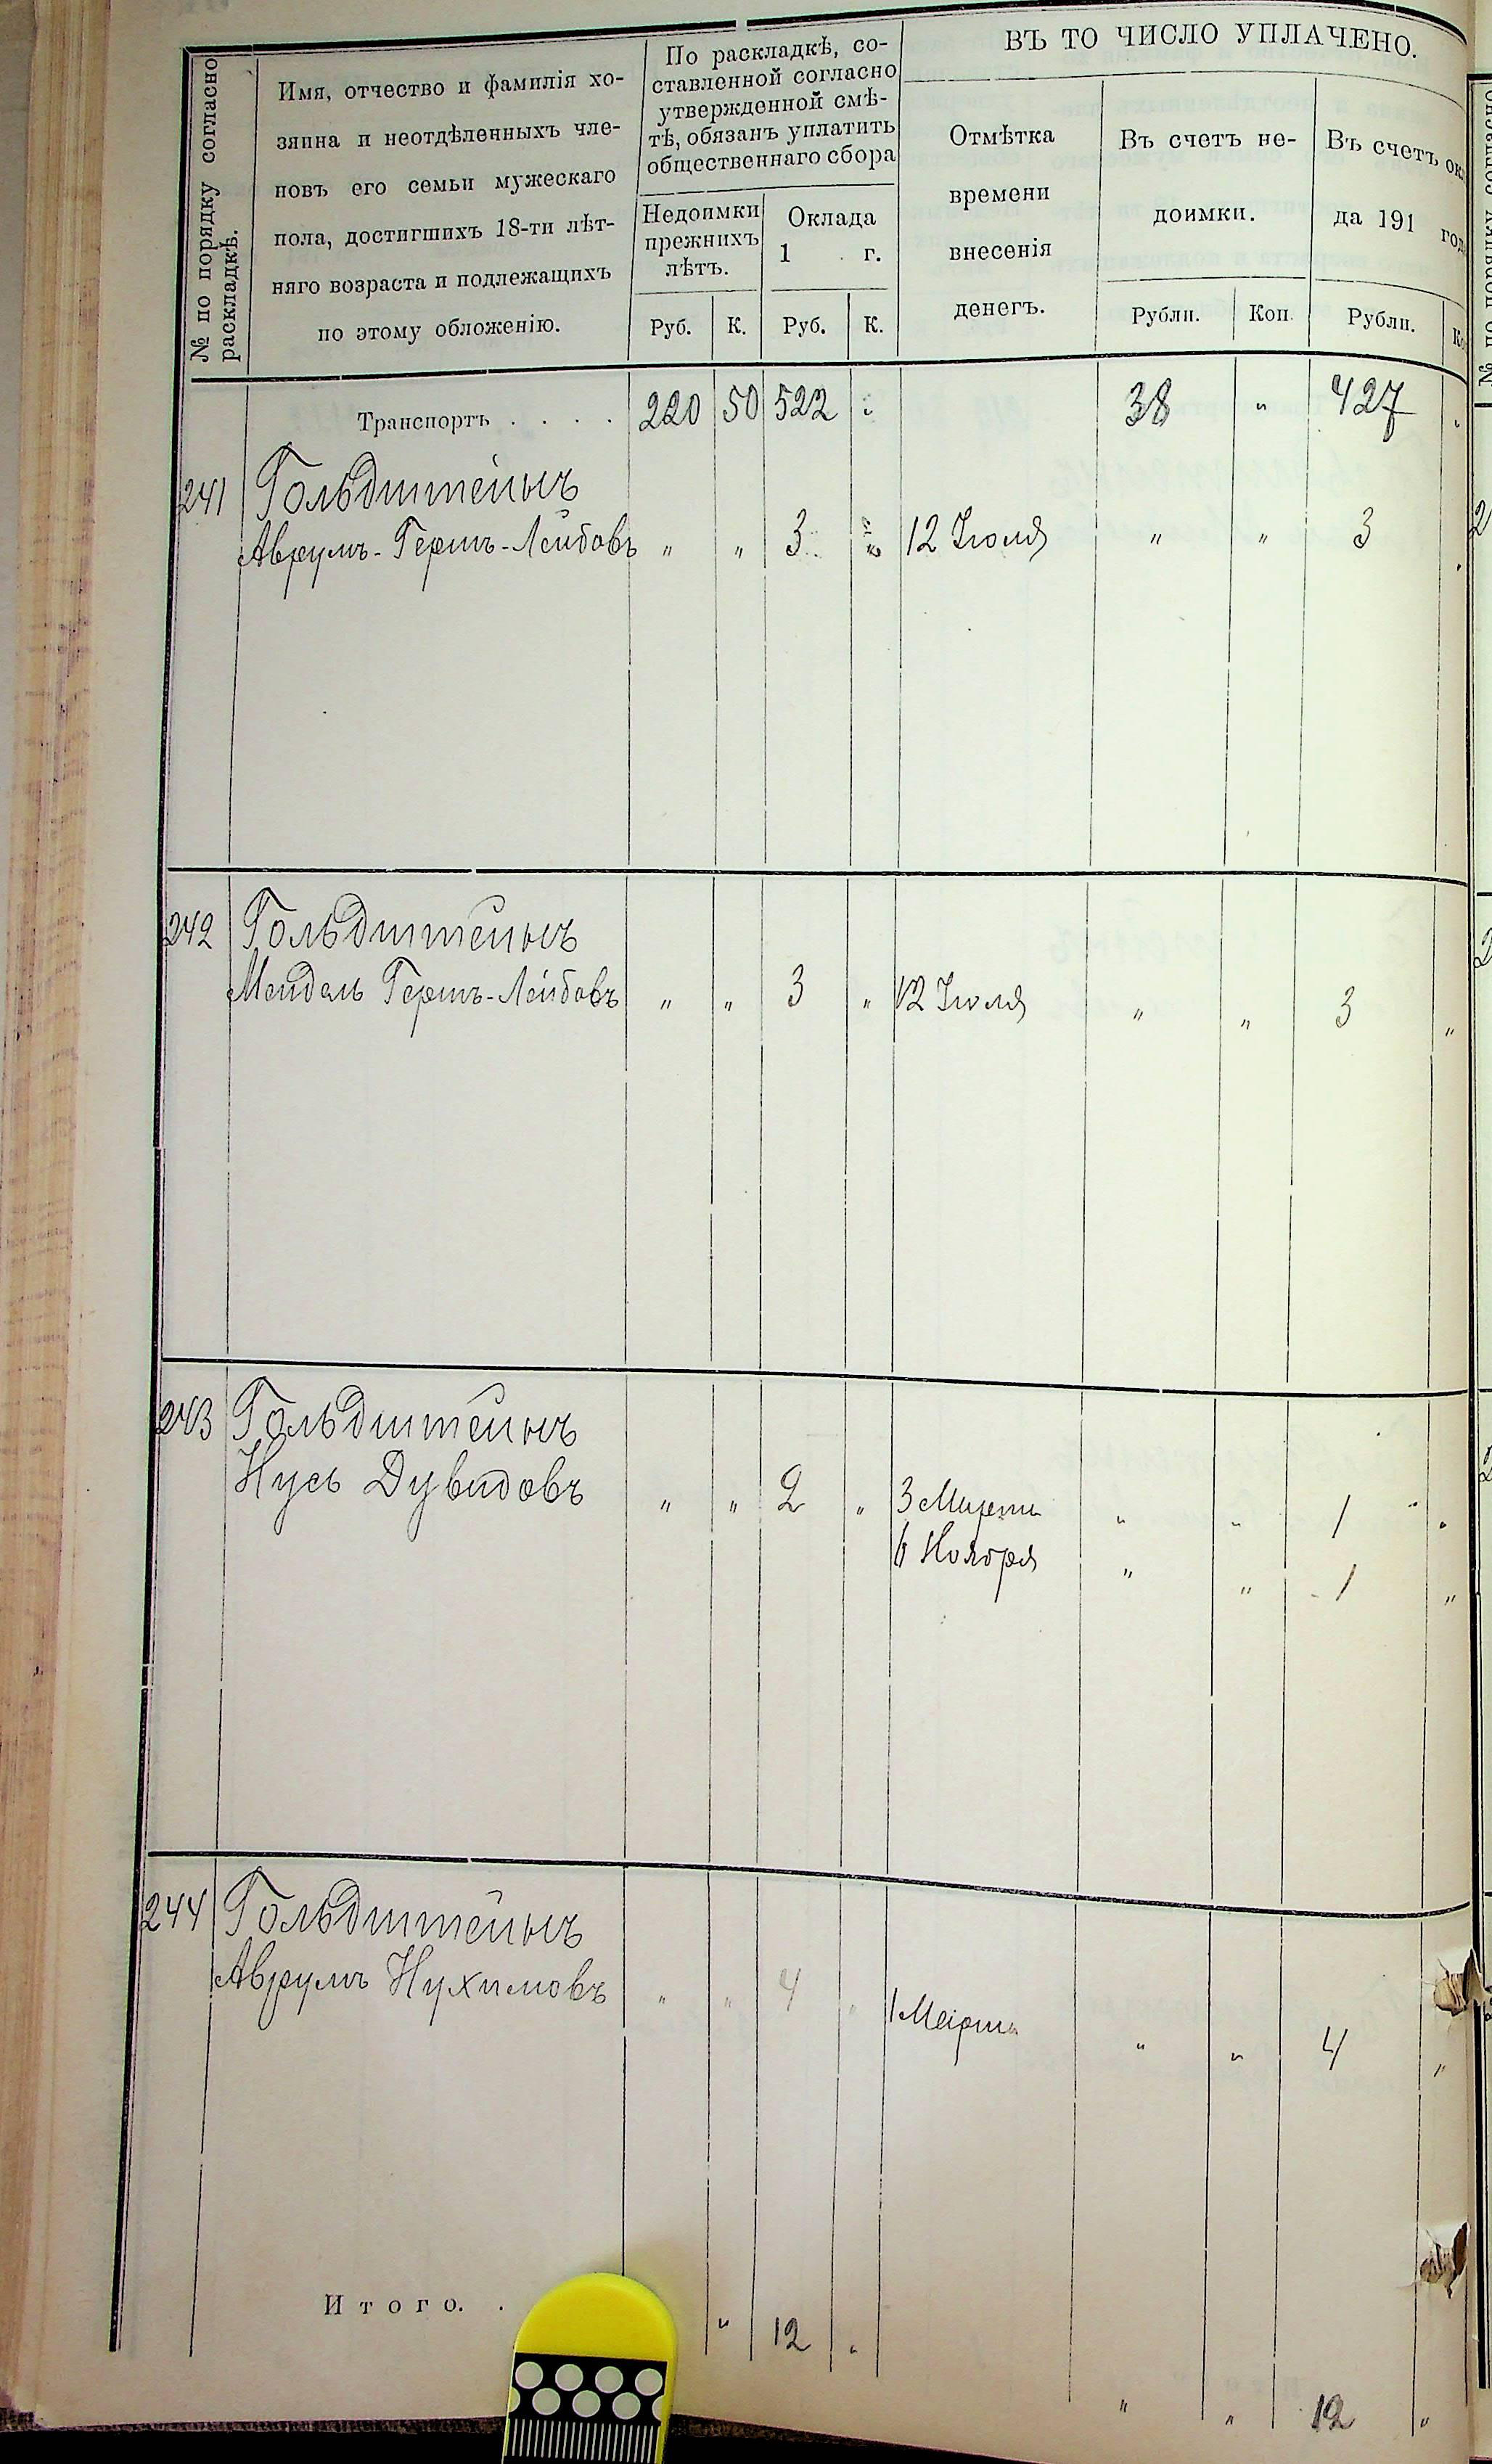 № по порядку согласно
раскладкѣ.
Имя, отчество и фамилія хо-
зяина и неотдѣленныхъ чле-
новъ его семьи мужескаго
пола, достигшихъ 18-ти лѣт-
няго возраста и подлежащихъ
по этому обложенію.
По раскладкѣ, со-
ставленной согласно
утвержденной смѣ-
тѣ, обязанъ уплатить
общественнаго сбора
Недоимки
прежнихъ
лѣтъ.
Оклада
1 . г.
Руб. К. Руб. К.
ВЪ ТО ЧИСЛО УПЛАЧЕНО.
Отмѣтка
времени
внесенія
денегъ.
Въ счетъ не-
доимки.
Рубли. Коп.
Въ счетъ ок
да 191 год
Рубли. К
Транспортъ . . . . 220 50 522 " 38 " 427 "
241 Гольдштейнъ
Аврумъ-Гершъ-Лейбовъ " " 3 " 12 Іюля " " 3 "
242 Гольдштейнъ
Мендель Гершъ-Лейбовъ " " 3 " 12 Іюля " " 3 "
243 Гольдштейнъ
Нусь Дувидовъ " " 2 " 3 Марта " " 1 "
6 Ноября " " 1 "
244 Гольдштейнъ
Аврумъ Нухимовъ " " 4 " 1 Марта " " 4 "
Итого. . " 12 " " " 12 "